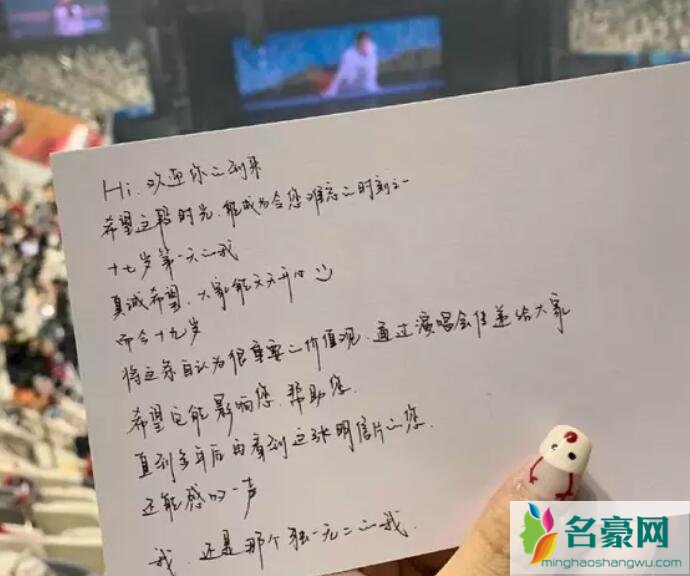 Hi. 欢迎你的到来
希望这段时光，能成为令您难忘之时刻之一
十七岁第一天的我
真诚希望，大家能天天开心
而今十九岁
将这条自认为很重要之价值观，通过演唱会传递给大家
希望它能影响您，帮助您.
直到多年后再看到这张明信片的您.
还能感叹一声
我，还是那个独一无二的我.
名豪网
minghaoshangwu.com